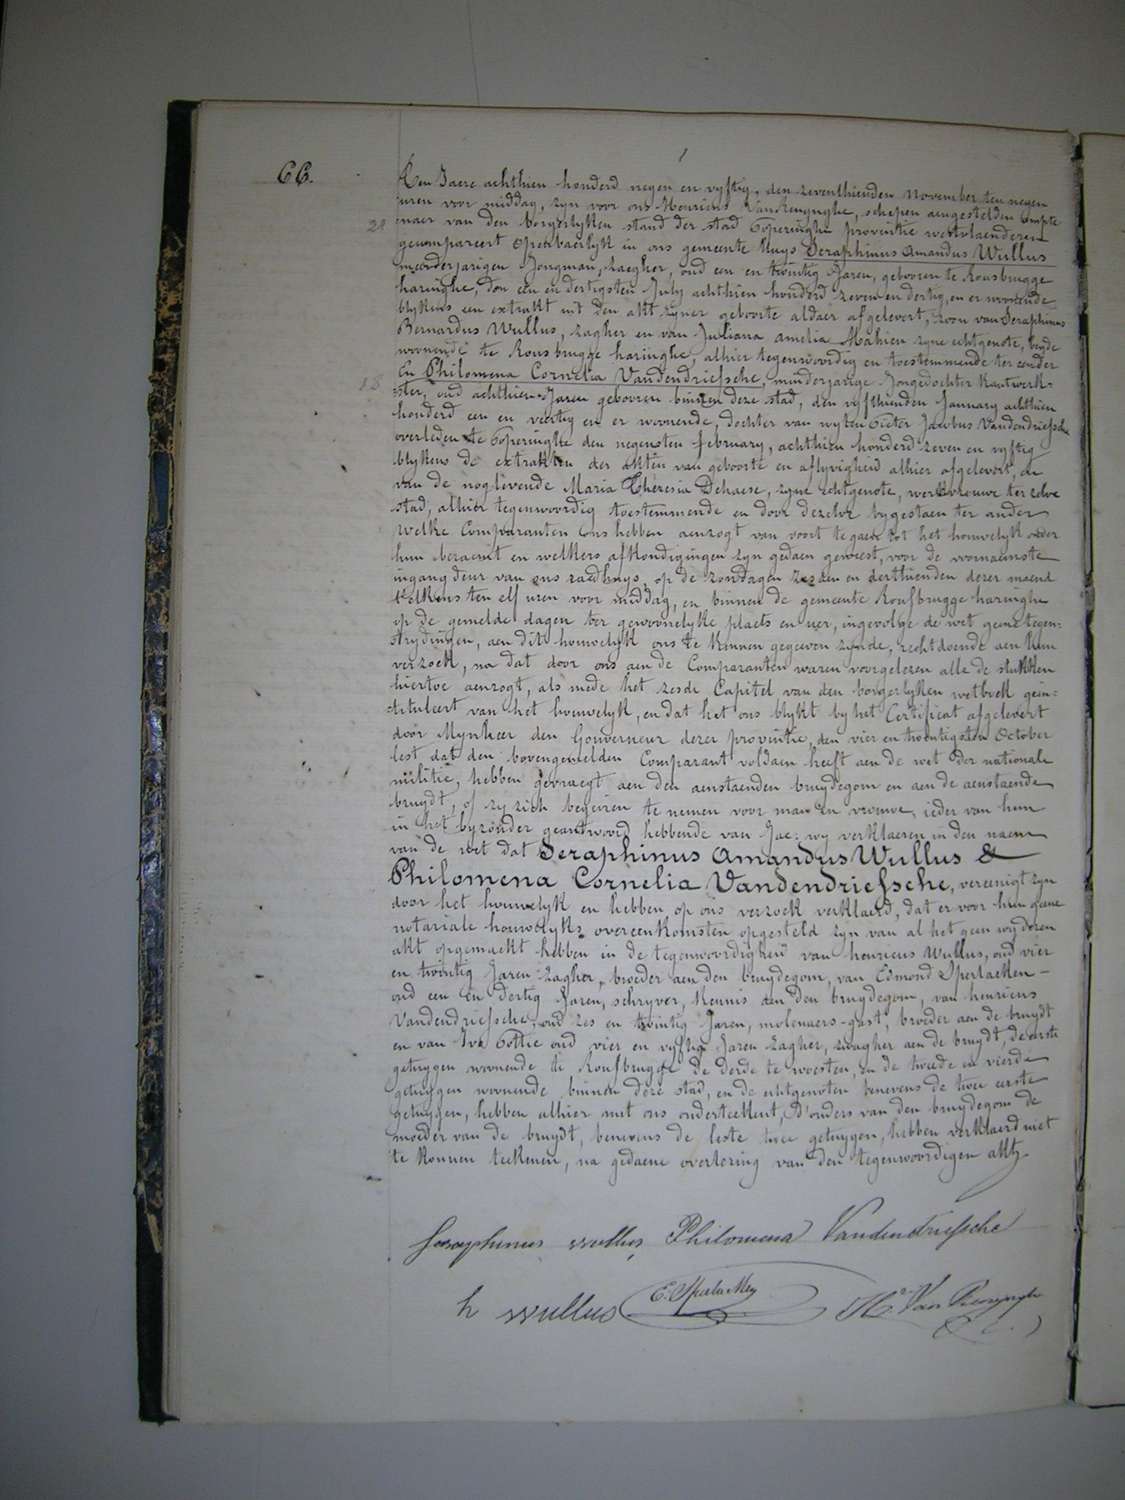 66.
Den Jaere achthien honderd negen en vyftig, den zeventhienden November ten negen
uren voor middag, zyn voor ons Henricus Vanrenynghe, schepen aengestelden ampte
naer van den borgerlyken stand der stad Poperinghe provintie westvlaenderen
gecompareert openbaerlyk in ons gemeente huys Seraphinus Amandus Wullus
meerderjarigen Jongman, zaegher, oud een en twintig Jaren, geboren te Rousbrugge
haringhe, den een en dertigsten July achthien honderd zeven en dertig, en er woonende
blykens een extrakt uit den akt zyner geboorte aldaer afgelevert, zoon van Seraphinus
Bernardus Wullus, zagher en van Juliana Amelia Mahieu zyne echtgenote, beyde
woonende te Rousbrugge haringhe, alhier tegenwoordig en toestemmende ter eender
18
En Philomena Cornelia Vandendriessche, minderjarige Jongedochter kantwerk-
ster, oud achthien Jaren geboren binnen deze stad, den vyfthienden January achthien
honderd een en veertig en er woonende, dochter van wylen Pieter Jacobus Vandendriessche
overleden te Poperinghe den negensten february, achthien honderd zeven en vyftig
blykens de extrakten der akten van geboorte en aflyvigheid alhier afgelevert, en
van de noglevende Maria Theresia Dehaese, zyne echtgenote, werkvrouwe ter zelve
stad, alhier tegenwoordig toestemmende en door dezelve bygestaen ter ander
Welke Comparanten ons hebben aenzogt van voort te gaen tot het houwelyk onder
hun beraemt en welkers afkondigingen zyn gedaen geweest, voor de voornaemste
ingang deur van ons raedhuys, op de zondagen zes en en derthienden dezer maend
telkens ten elf uren voor middag, en binnen de gemeente Rousbrugge haringhe
op de gemelde dagen ter gewoonelyke plaets en uer, ingevolge de wet geene tegen-
strydingen, aen dit houwelyk ons te kennen gegeven zynde, rechtdoende aen hun
verzoek, na dat door ons aen de Comparanten waren voorgelezen alle de stukken
hiertoe aenzogt, als mede het zesde Capitel van den borgerlyken wetboek gein-
dituleert van het houwelyk, en dat het ons blykt by het Certificat afgelevert
door Mynheer den Gouverneur dezer provintie, den vier en twintigsten October
lest dat den bovengemelden Comparant voldaen heeft aen de wet der nationale
militie, hebben gevraegt aen den aenstaenden bruydegom en aen de aenstaende
bruydt, of zy zich begeiren te nemen voor man en vrouwe, ieder van hun
in het byzonder geantwoord hebbende van Jae: wy verklaeren in den naem
van de wet dat Seraphinus Amandus Wullus &
Philomena Cornelia Vandendriessche, vereenigt zyn
door het houwelyk en hebben op ons verzoek verklaerd, dat er voor hun geene
notariale houwelyks overeenkomsten opgesteld zyn van al het geen wy dezen
akt opgemaekt hebben in de tegenwoordigheid van henricus Wullus, oud vier
en twintig Jaren zagher, broeder aen den bruydegom, van Edmond
oud een en dertig Jaren, schryver, kennis aen den bruydegom, van henricus
Vandendriessche, oud zes en twintig Jaren, molenaers-gast, broeder aen de bruydt
en van Ivo Pottie oud vier en vyftig Jaren zagher, zwagher aen de bruydt, de eerste
getuygen woonende te Rousbrugge de derde te woesten, en de tweede en vierde
getuygen woonende binnen deze stad, en de echtgenoten benevens de twee eerste
getuygen, hebben alhier met ons onderteekent, d'ouders van den bruydegom de
moeder van de bruydt, benevens de leste twee getuygen, hebben verklaerd niet
te konnen teekenen, na gedaene overlezing van den tegenwoordigen akt.
Seraphinus Wullus Philomena Vandendriessche
h Wullus